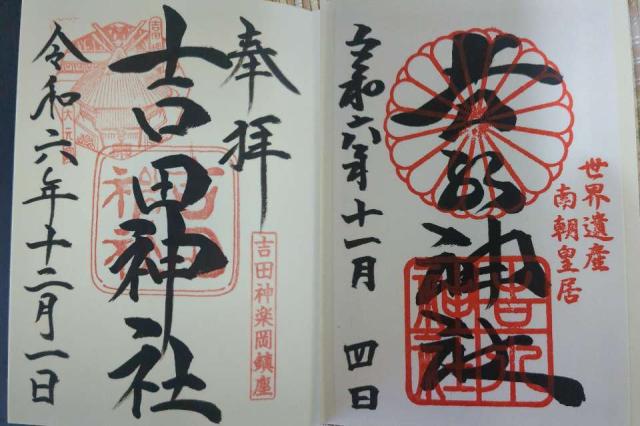 世界遺産
南朝皇居
吉水神社
令和六年十一月 四日
奉拝
吉田神楽岡鎮座
吉田神社
令和六年十二月一日